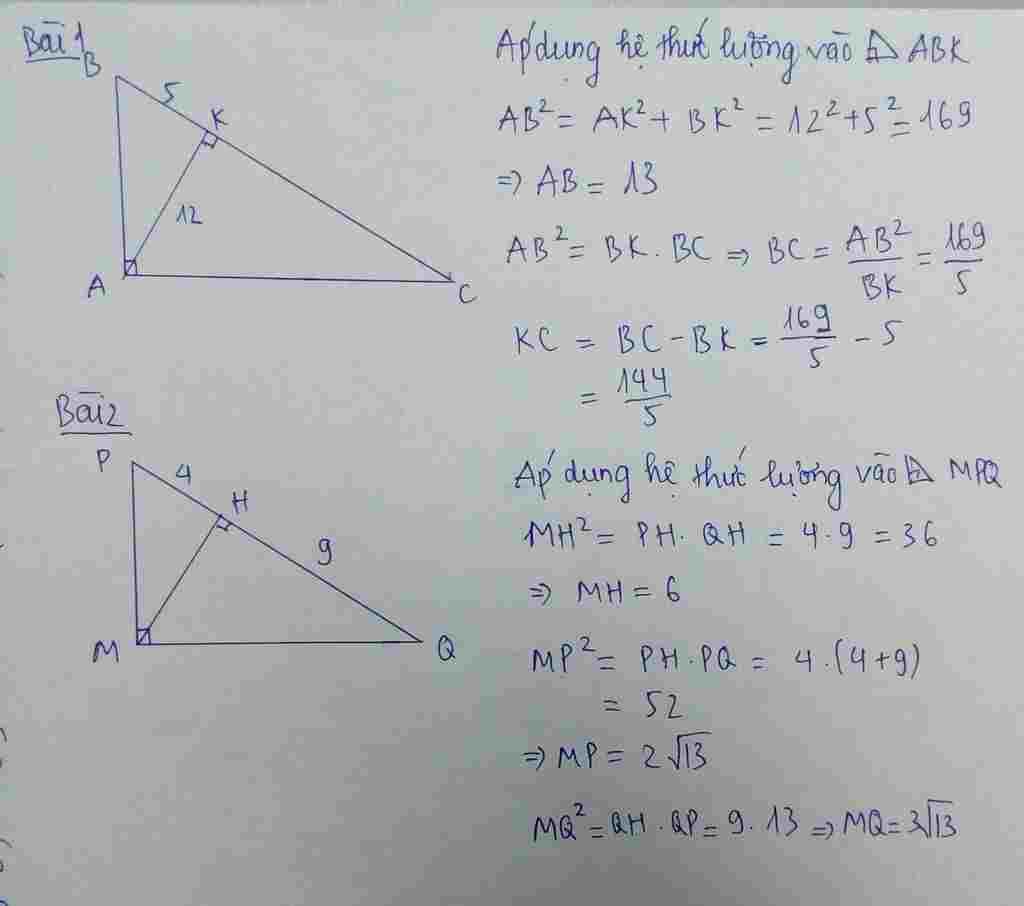 Bài 1
B
5
K
12
A
C
Áp dụng hệ thức lượng vào ⊿ ABK
AB² = AK² + BK² = 12² + 5² = 169
=> AB = 13
AB² = BK . BC => BC = AB²/BK = 169/5
KC = BC - BK = 169/5 - 5
= 144/5
Bài 2
P
4
H
9
M
Q
Áp dụng hệ thức lượng vào ⊿ MPQ
MH² = PH . QH = 4 . 9 = 36
=> MH = 6
MP² = PH . PQ = 4 . (4+9)
= 52
=> MP = 2√13
MQ² = QH . QP = 9 . 13 => MQ = 3√13